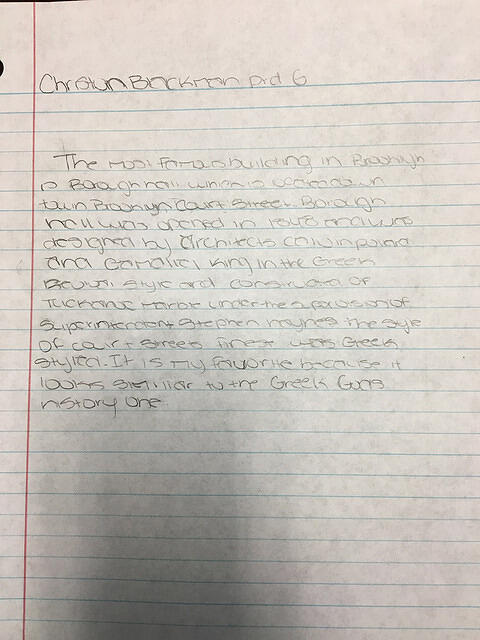 Blackman prd 6
The most famous building in Brooklyn
is Borough hall which is located in
town Brooklyn Court Street. Borough
hall was opened in and was
designed by architects Calvin
and Gamaliel King in the Greek
style and constructed of
Tuckahoe under the supervision of
Superintendent Stephen Haynes the style
of court streets finest was Greek
styled. It is my favorite because it
looks similiar to the Greek Gods
history one